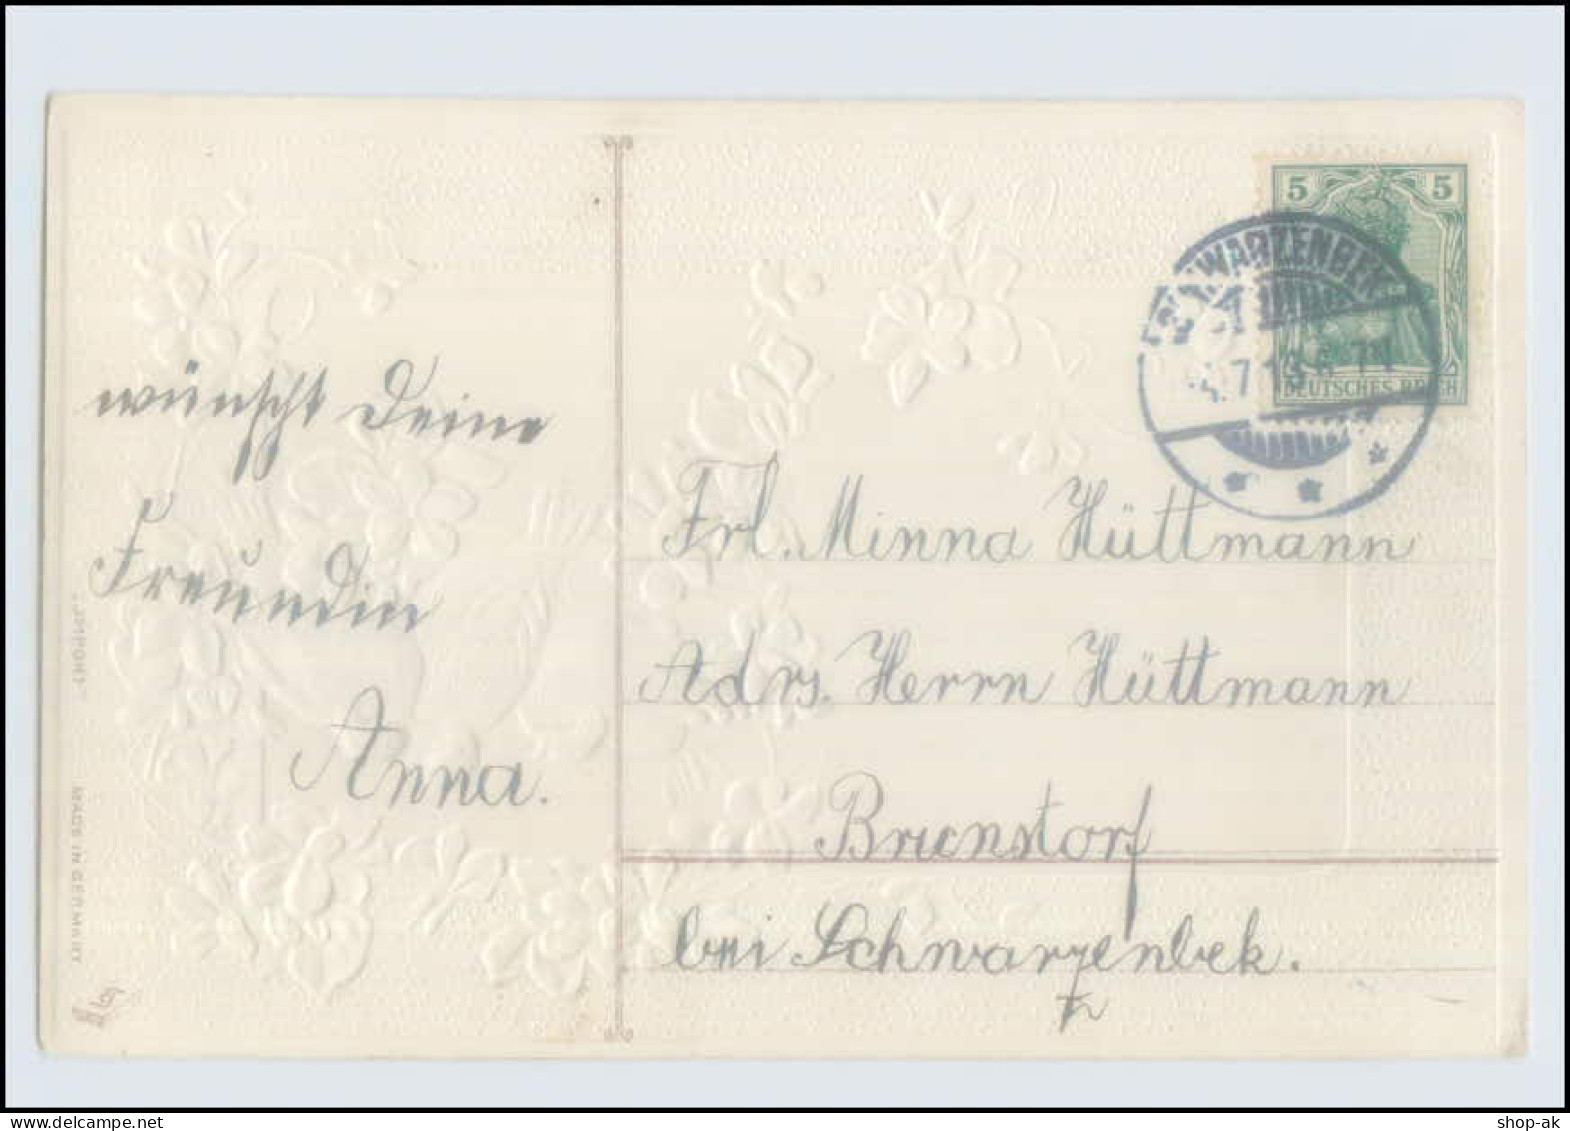 wünscht Deine
Freundin
Anna.
5 5
DEUTSCHES REICH
SCHWARZENBEK
Frl. Minna Hüttmann
Adrs. Herrn Hüttmann
Brunstorf
bei Schwarzenbek.
"IMPORT"
MADE IN GERMANY
shop-ak